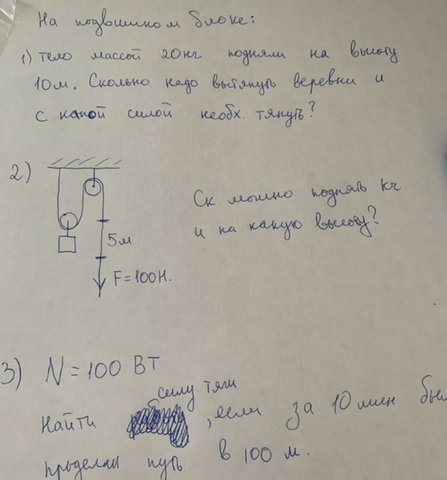 На подвижном блоке:
1) тело массой 20кг подняли на высоту
10м. Сколько надо вытянуть веревки и
с какой силой необх. тянуть?
2)
Ск можно поднять кг
и на какую высоту?
5м
F=100Н.
3) N=100 ВТ
силу тяги
Найти , если за 10 мин был
проделан путь в 100 м.